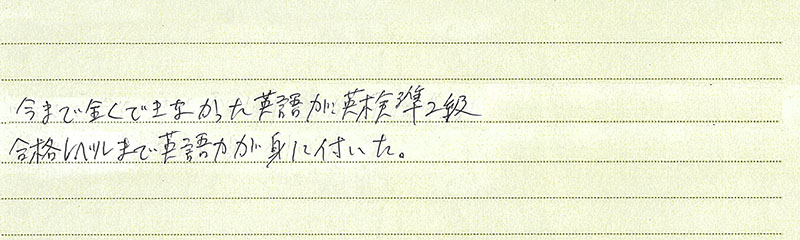 今まで全くできなかった英語が英検準2級
合格レベルまで英語力が身に付いた。